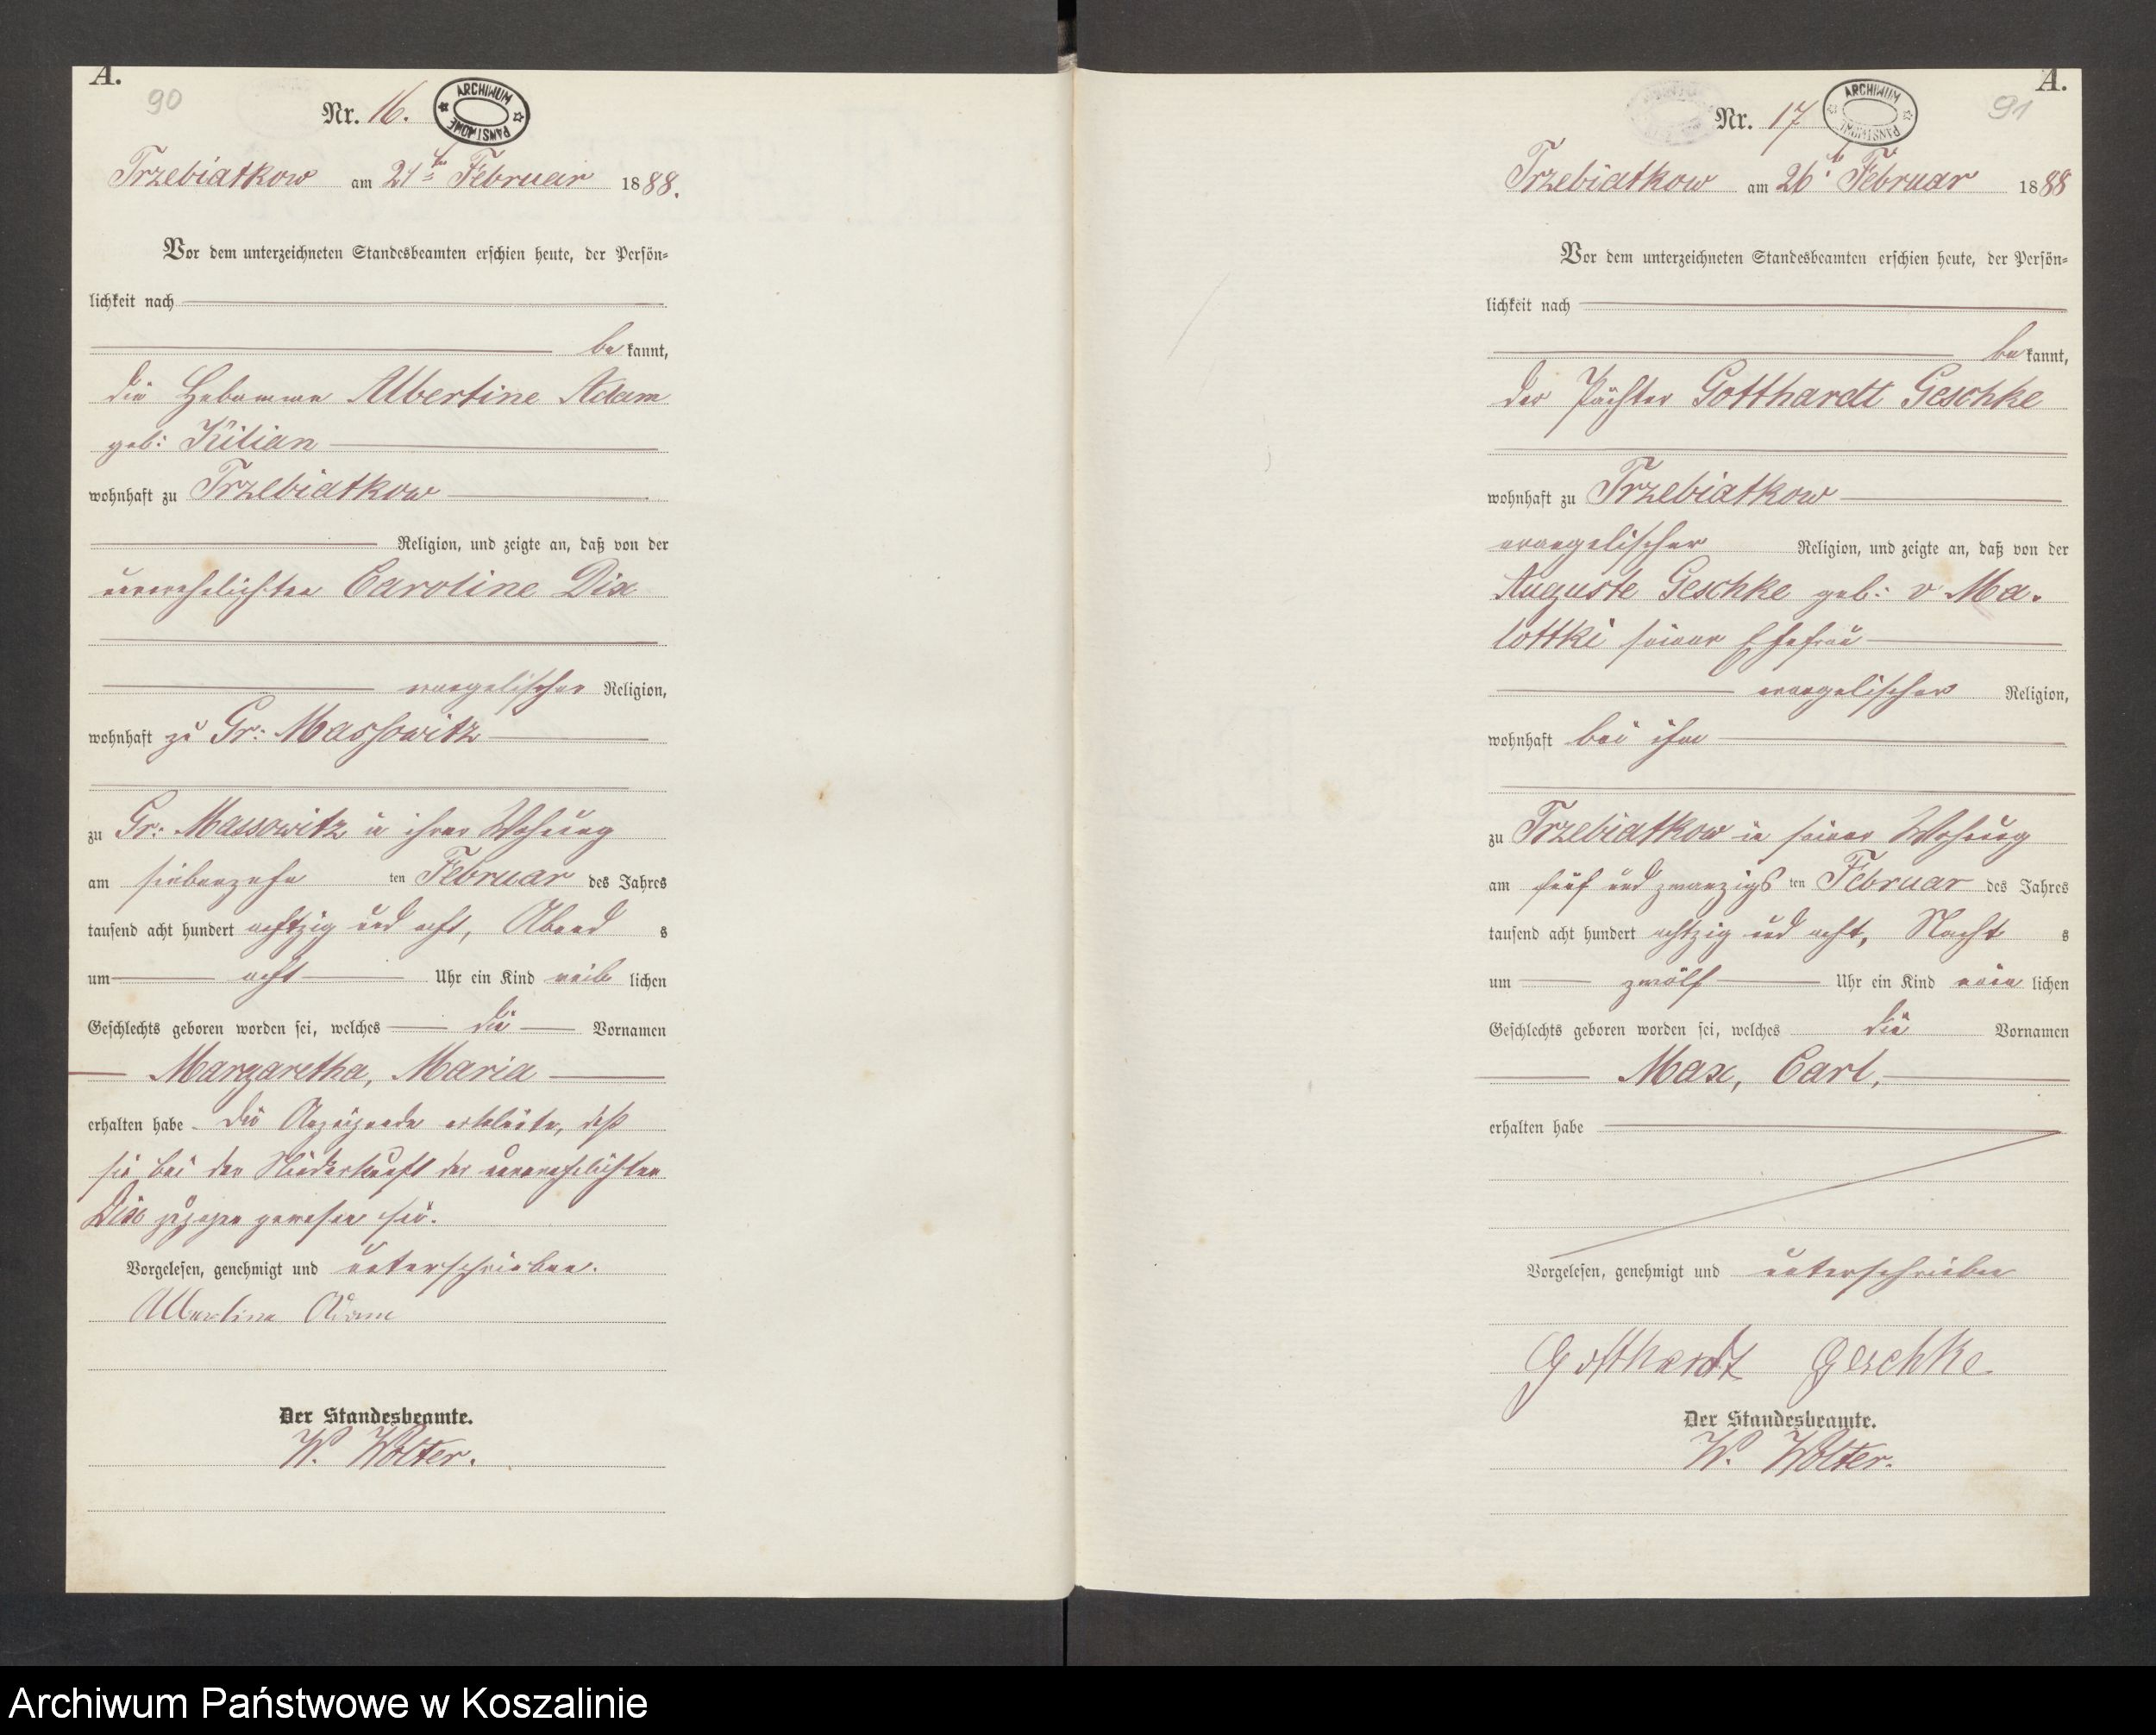 A.
90
Nr. 16.
ARCHIWUM PAŃSTWOWE
Trzebiatkow am 21ten Februar 1888.
Vor dem unterzeichneten Standesbeamten erschien heute, der Persön-
lichkeit nach
be kannt,
die Hebamme Albertine Adam
geb: Kilian
wohnhaft zu Trzebiatkow
Religion, und zeigte an, daß von der
unverehelichten Caroline Dix
evangelischer Religion,
wohnhaft zu Gr: Massowitz
zu Gr: Massowitz in ihrer Wohnung
am siebenzehn ten Februar des Jahres
tausend acht hundert achtzig und acht, Abend s
um acht Uhr ein Kind weib lichen
Geschlechts geboren worden sei, welches die Vornamen
Margaretha, Maria
erhalten habe. Die Anzeigende erklärte, daß
sie bei der Niederkunft der unverehelichten
Dix zugegen gewesen sei.
Vorgelesen, genehmigt und unterschrieben.
Albertine Adam
Der Standesbeamte.
W. Wolter.
A.
91
Nr. 17
ARCHIWUM PAŃSTWOWE
Trzebiatkow am 26t Februar 1888
Vor dem unterzeichneten Standesbeamten erschien heute, der Persön-
lichkeit nach
be kannt,
der Pächter Gotthardt Geschke
wohnhaft zu Trzebiatkow
evangelischer Religion, und zeigte an, daß von der
Auguste Geschke geb: v Ma-
lottki seiner Ehefrau
evangelischer Religion,
wohnhaft bei ihm
zu Trzebiatkow in seiner Wohnung
am fünf und zwanzigs ten Februar des Jahres
tausend acht hundert achtzig und acht, Nacht s
um zwölf Uhr ein Kind män lichen
Geschlechts geboren worden sei, welches die Vornamen
Max, Carl,
erhalten habe
Vorgelesen, genehmigt und unterschrieben
Gotthardt Geschke
Der Standesbeamte.
W. Wolter.
Archiwum Państwowe w Koszalinie